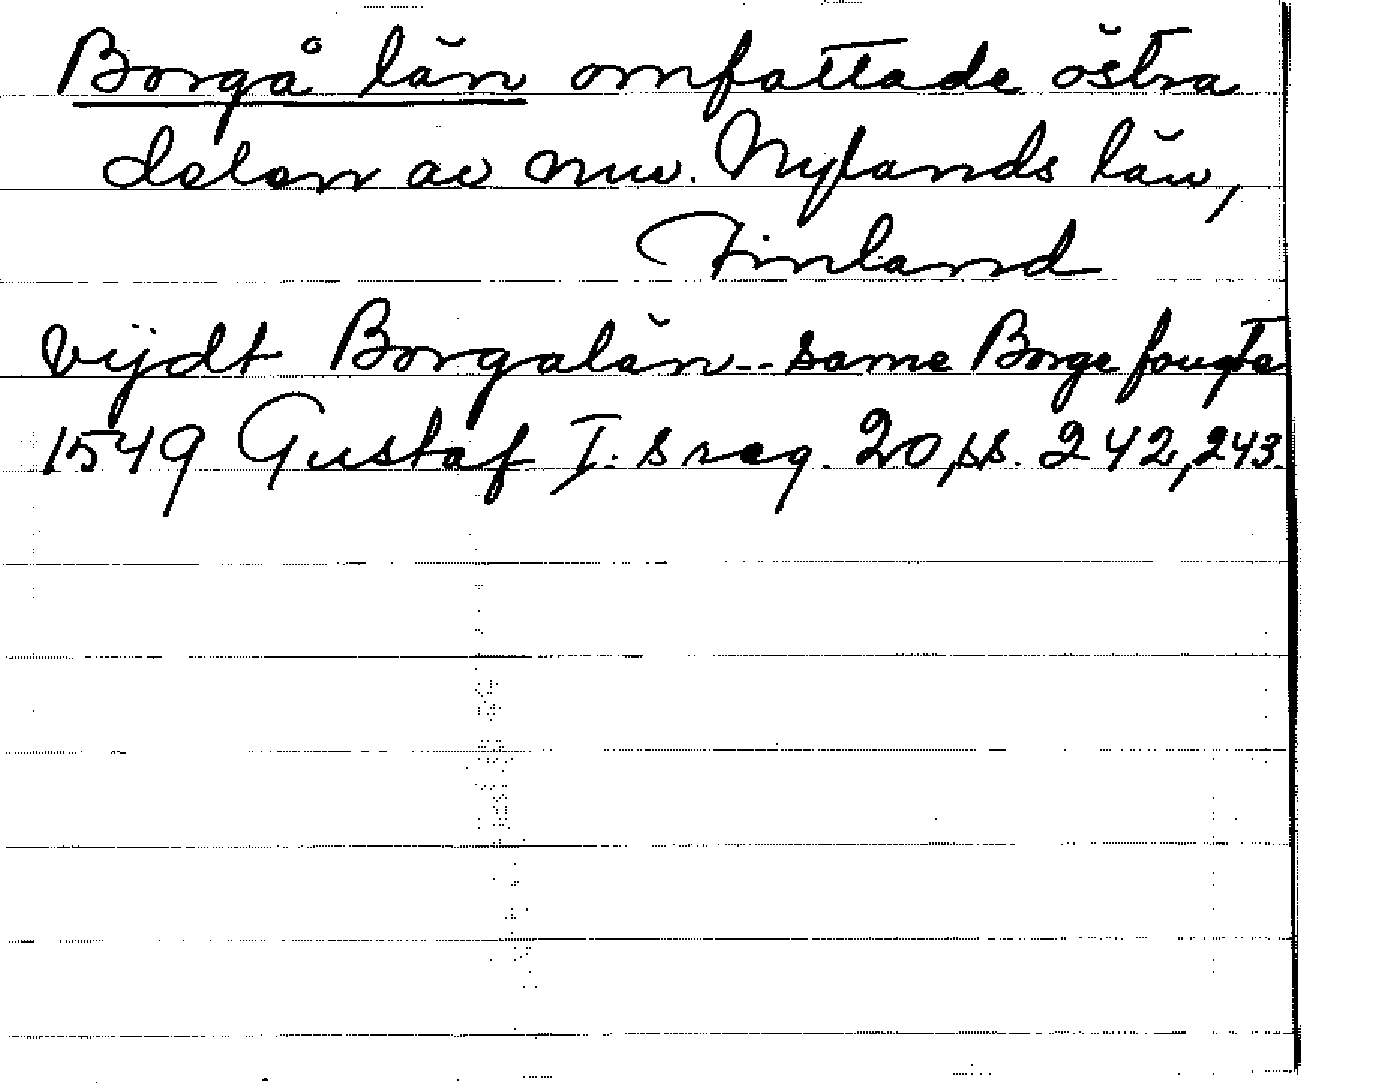 Borgå län omfattade östra
delen av nuv. Nylands län,
Finland
vijdt Borgalän -- same Borge fougte
1549 Gustaf I:s reg. 20, ss. 242, 243.